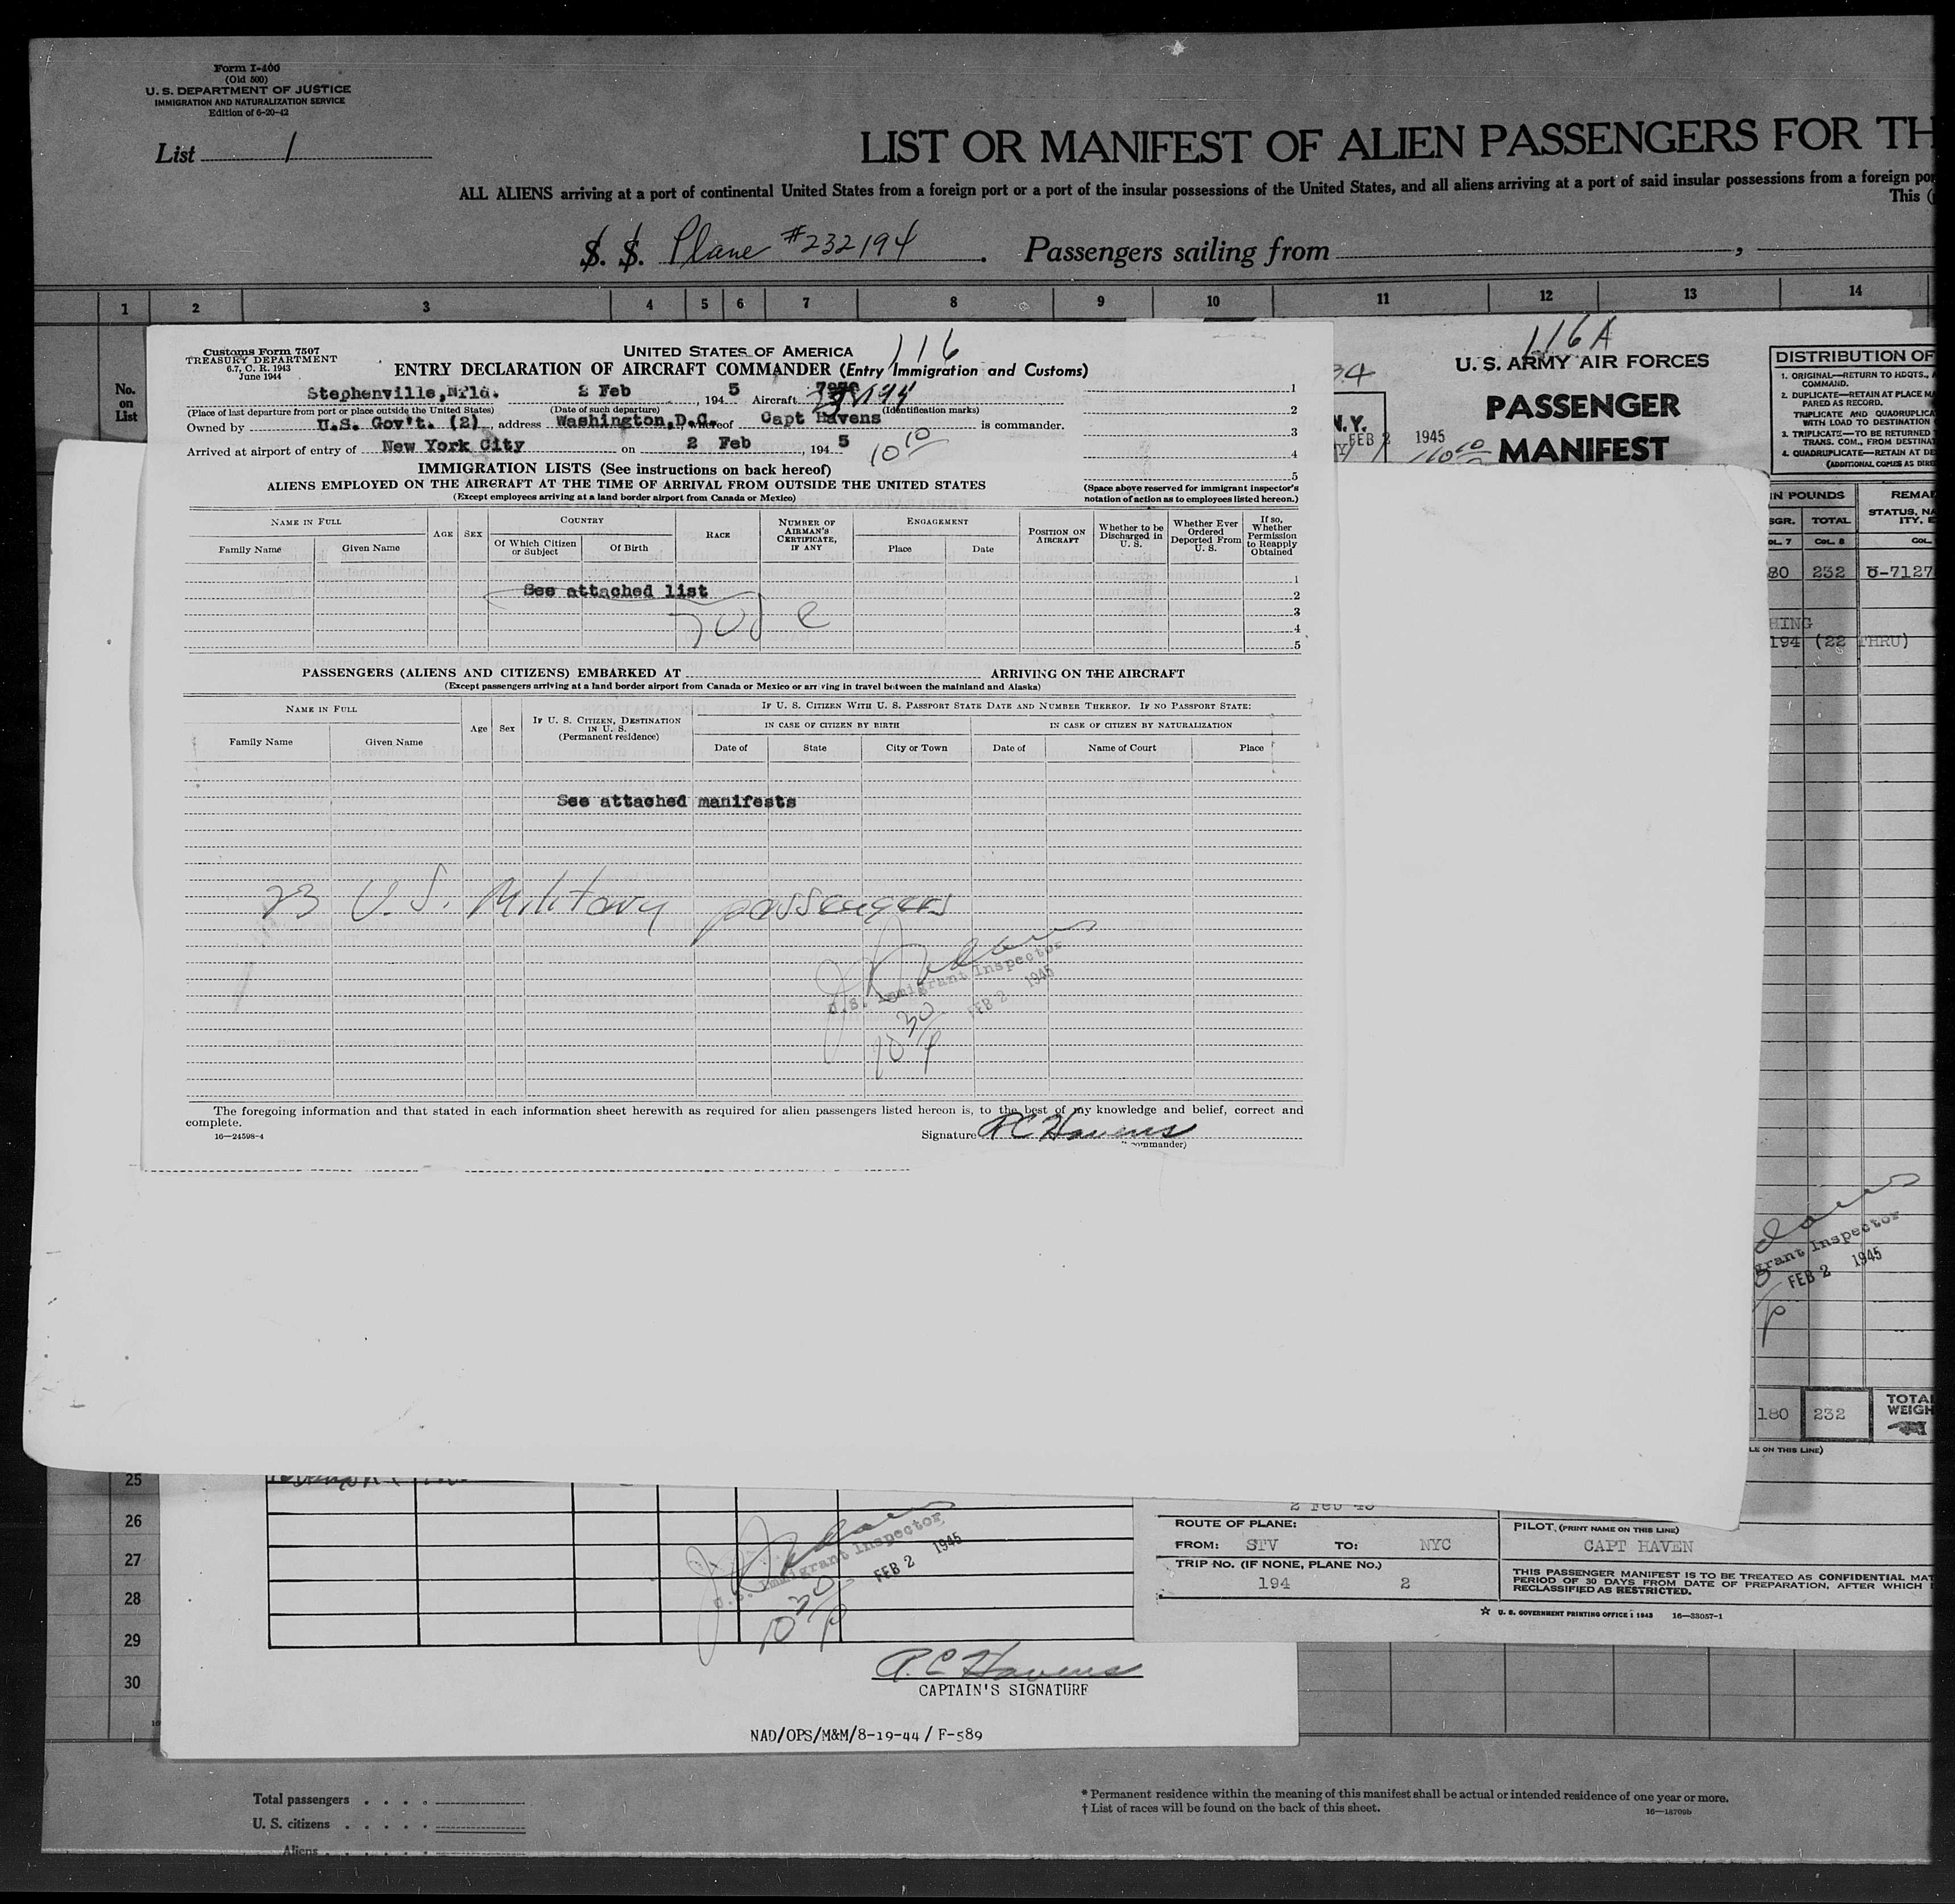 Form I-400
(Old 500)
U. S. DEPARTMENT OF JUSTICE
IMMIGRATION AND NATURALIZATION SERVICE
Edition of 6-20-42
List 1
LIST OR MANIFEST OF ALIEN PASSENGERS FOR TH
ALL ALIENS arriving at a port of continental United States from a foreign port or a port of the insular possessions of the United States, and all aliens arriving at a port of said insular possessions from a foreign por
This (
S. S. Plane #232194. Passengers sailing from ,
1 2 3 4 5 6 7 8 9 10 11 12 13 14
No. on List
Customs Form 7507
TREASURY DEPARTMENT
6.7, C. R. 1943
June 1944
UNITED STATES OF AMERICA
116
ENTRY DECLARATION OF AIRCRAFT COMMANDER (Entry Immigration and Customs)
Stephenville,Nfld. 2 Feb , 194 5 Aircraft
(Place of last departure from port or place outside the United States) (Date of such departure) (Identification marks)
Owned by U.S. Gov't. (2) , address Washington,D.C. , whereof Capt Havens is commander.
Arrived at airport of entry of New York City on 2 Feb , 194 5 10 10
1
2
3
4
5
IMMIGRATION LISTS (See instructions on back hereof)
ALIENS EMPLOYED ON THE AIRCRAFT AT THE TIME OF ARRIVAL FROM OUTSIDE THE UNITED STATES
(Except employees arriving at a land border airport from Canada or Mexico)
(Space above reserved for immigrant inspector's
notation of action as to employees listed hereon.)
NAME IN FULL
Family Name Given Name
AGE SEX
COUNTRY
Of Which Citizen or Subject Of Birth
RACE
NUMBER OF AIRMAN'S CERTIFICATE, IF ANY
ENGAGEMENT
Place Date
POSITION ON AIRCRAFT
Whether to be Discharged in U. S.
Whether Ever Ordered Deported From U. S.
If so, Whether Permission to Reapply Obtained
1
See attached list
2
3
4
5
PASSENGERS (ALIENS AND CITIZENS) EMBARKED AT ARRIVING ON THE AIRCRAFT
(Except passengers arriving at a land border airport from Canada or Mexico or arriving in travel between the mainland and Alaska)
NAME IN FULL
Family Name Given Name
Age Sex
IF U. S. CITIZEN, DESTINATION IN U. S. (Permanent residence)
IF U. S. CITIZEN WITH U. S. PASSPORT STATE DATE AND NUMBER THEREOF. IF NO PASSPORT STATE:
IN CASE OF CITIZEN BY BIRTH IN CASE OF CITIZEN BY NATURALIZATION
Date of State City or Town Date of Name of Court Place
See attached manifests
23 U.S. Military passengers
U.S. Immigrant Inspector
FEB 2 1945
10 30 P
The foregoing information and that stated in each information sheet herewith as required for alien passengers listed hereon is, to the best of my knowledge and belief, correct and
complete.
16—24598-4
Signature R C Havens
commander)
116A
U. S. ARMY AIR FORCES
PASSENGER
MANIFEST
N.Y.
FEB 2 1945
DISTRIBUTION OF
1. ORIGINAL—RETURN TO HDQTS.,
COMMAND.
2. DUPLICATE—RETAIN AT PLACE
PARED AS RECORD.
TRIPLICATE AND QUADRUPLICA
WITH LOAD TO DESTINATION
3. TRIPLICATE—TO BE RETURNED
TRANS. COM., FROM DESTINA
4. QUADRUPLICATE—RETAIN AT DE
(ADDITIONAL COPIES AS DIRE
IN POUNDS REMA
STATUS, NA
ITY, E
SGR. TOTAL
OL. 7 COL. 8 COL.
80 232 O-7127
HING
194 (22 THRU)
grant Inspector
FEB 2 1945
P
180 232 TOTAL WEIGH
LE ON THIS LINE)
25
26
27
28
29
30
U.S. Immigrant Inspector
FEB 2 1945
10 30 P
R.C Havens
CAPTAIN'S SIGNATURE
NAD/OPS/M&M/8-19-44 / F-589
2 Feb 45
ROUTE OF PLANE:
FROM: STV TO: NYC
TRIP NO. (IF NONE, PLANE NO.)
194 2
PILOT, (PRINT NAME ON THIS LINE)
CAPT HAVEN
THIS PASSENGER MANIFEST IS TO BE TREATED AS CONFIDENTIAL MAT
PERIOD OF 30 DAYS FROM DATE OF PREPARATION, AFTER WHICH
RECLASSIFIED AS RESTRICTED.
☆ U. S. GOVERNMENT PRINTING OFFICE : 1943 16—33057-1
Total passengers . . . .
U. S. citizens . . . . .
Aliens . . . . . .
* Permanent residence within the meaning of this manifest shall be actual or intended residence of one year or more.
† List of races will be found on the back of this sheet.
16—18709b